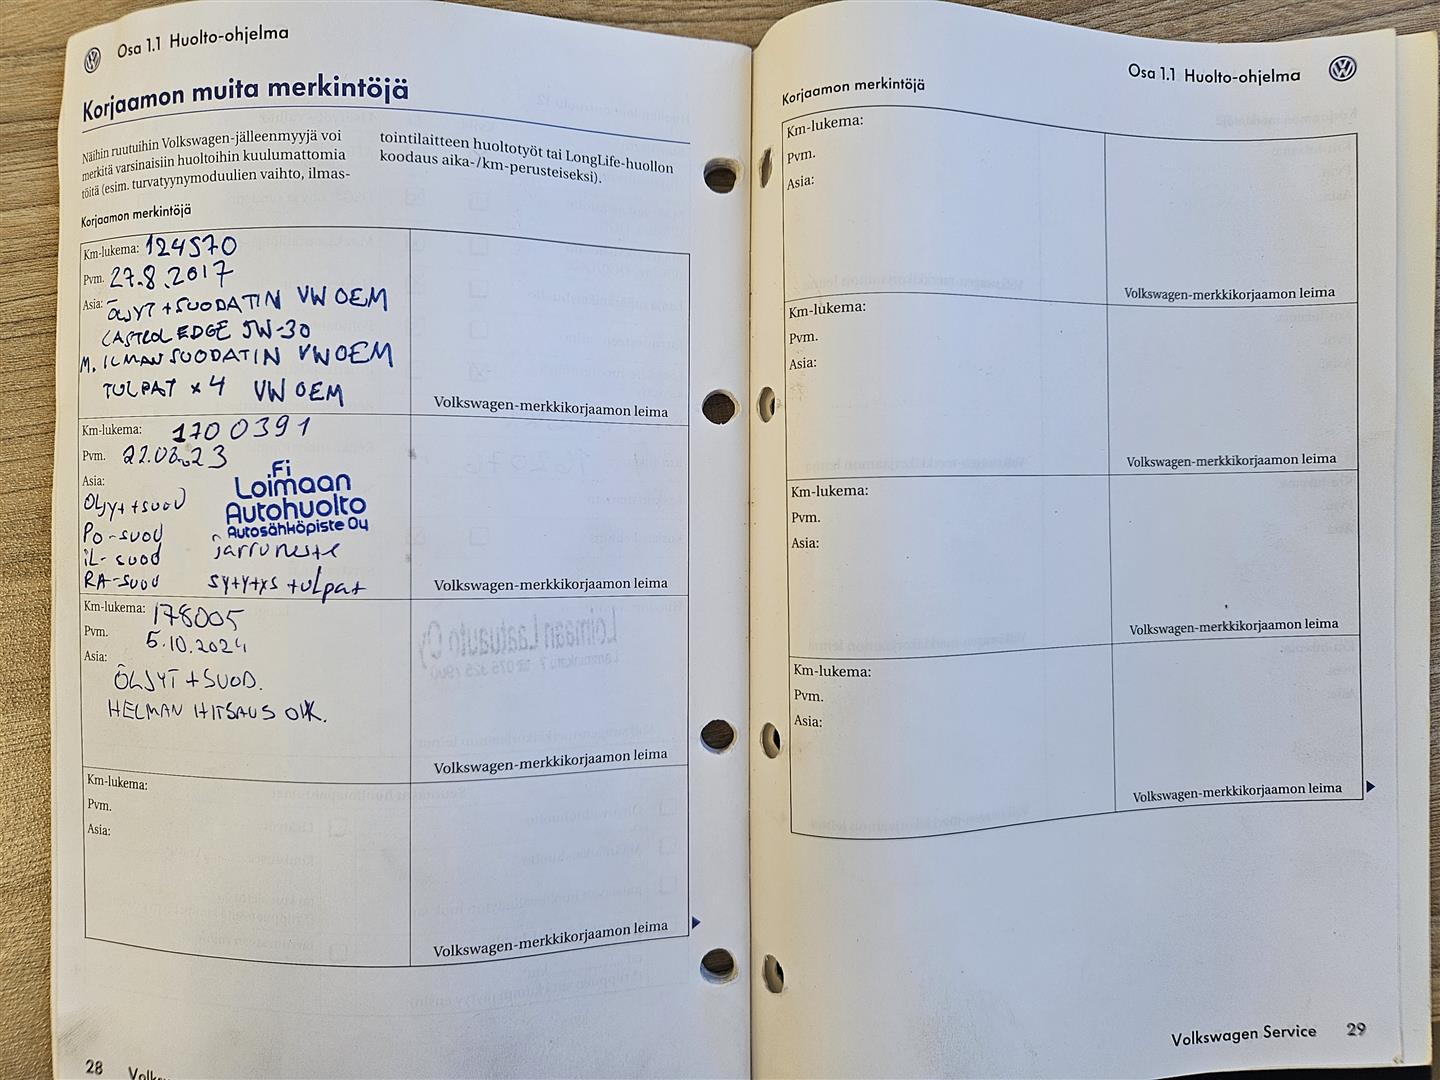 Osa 1.1 Huolto-ohjelma
Korjaamon muita merkintöjä
Näihin ruutuihin Volkswagen-jälleenmyyjä voi
merkitä varsinaisiin huoltoihin kuulumattomia
töitä (esim. turvatyynymoduulien vaihto, ilmas-
tointilaitteen huoltotyöt tai LongLife-huollon
koodaus aika-/km-perusteiseksi).
Korjaamon merkintöjä
Km-lukema: 124570
Pvm. 27.8.2017
Asia: ÖLJYT + SUODATIN VW OEM
CASTROL EDGE 5W-30
M. ILMANSUODATIN VW OEM
TULPAT x 4 VW OEM
Volkswagen-merkkikorjaamon leima
Km-lukema: 1700391
Pvm. 22.03.23
Asia:
Fi
Loimaan
Autohuolto
Autosähköpiste Oy
Öljyt + suod
Po-suod
iL-suod jarruneste
RA-suod sytytys tulpat
Volkswagen-merkkikorjaamon leima
Km-lukema: 178005
Pvm. 5.10.2024
Asia:
ÖLJYT + SUOD.
HELMAN HITSAUS OIK.
Loimaan Laatuauto Oy
Volkswagen-merkkikorjaamon leima
Km-lukema:
Pvm.
Asia:
Volkswagen-merkkikorjaamon leima
28
Osa 1.1 Huolto-ohjelma
Korjaamon merkintöjä
Km-lukema:
Pvm.
Asia:
Volkswagen-merkkikorjaamon leima
Km-lukema:
Pvm.
Asia:
Volkswagen-merkkikorjaamon leima
Km-lukema:
Pvm.
Asia:
Volkswagen-merkkikorjaamon leima
Km-lukema:
Pvm.
Asia:
Volkswagen-merkkikorjaamon leima
Volkswagen Service 29